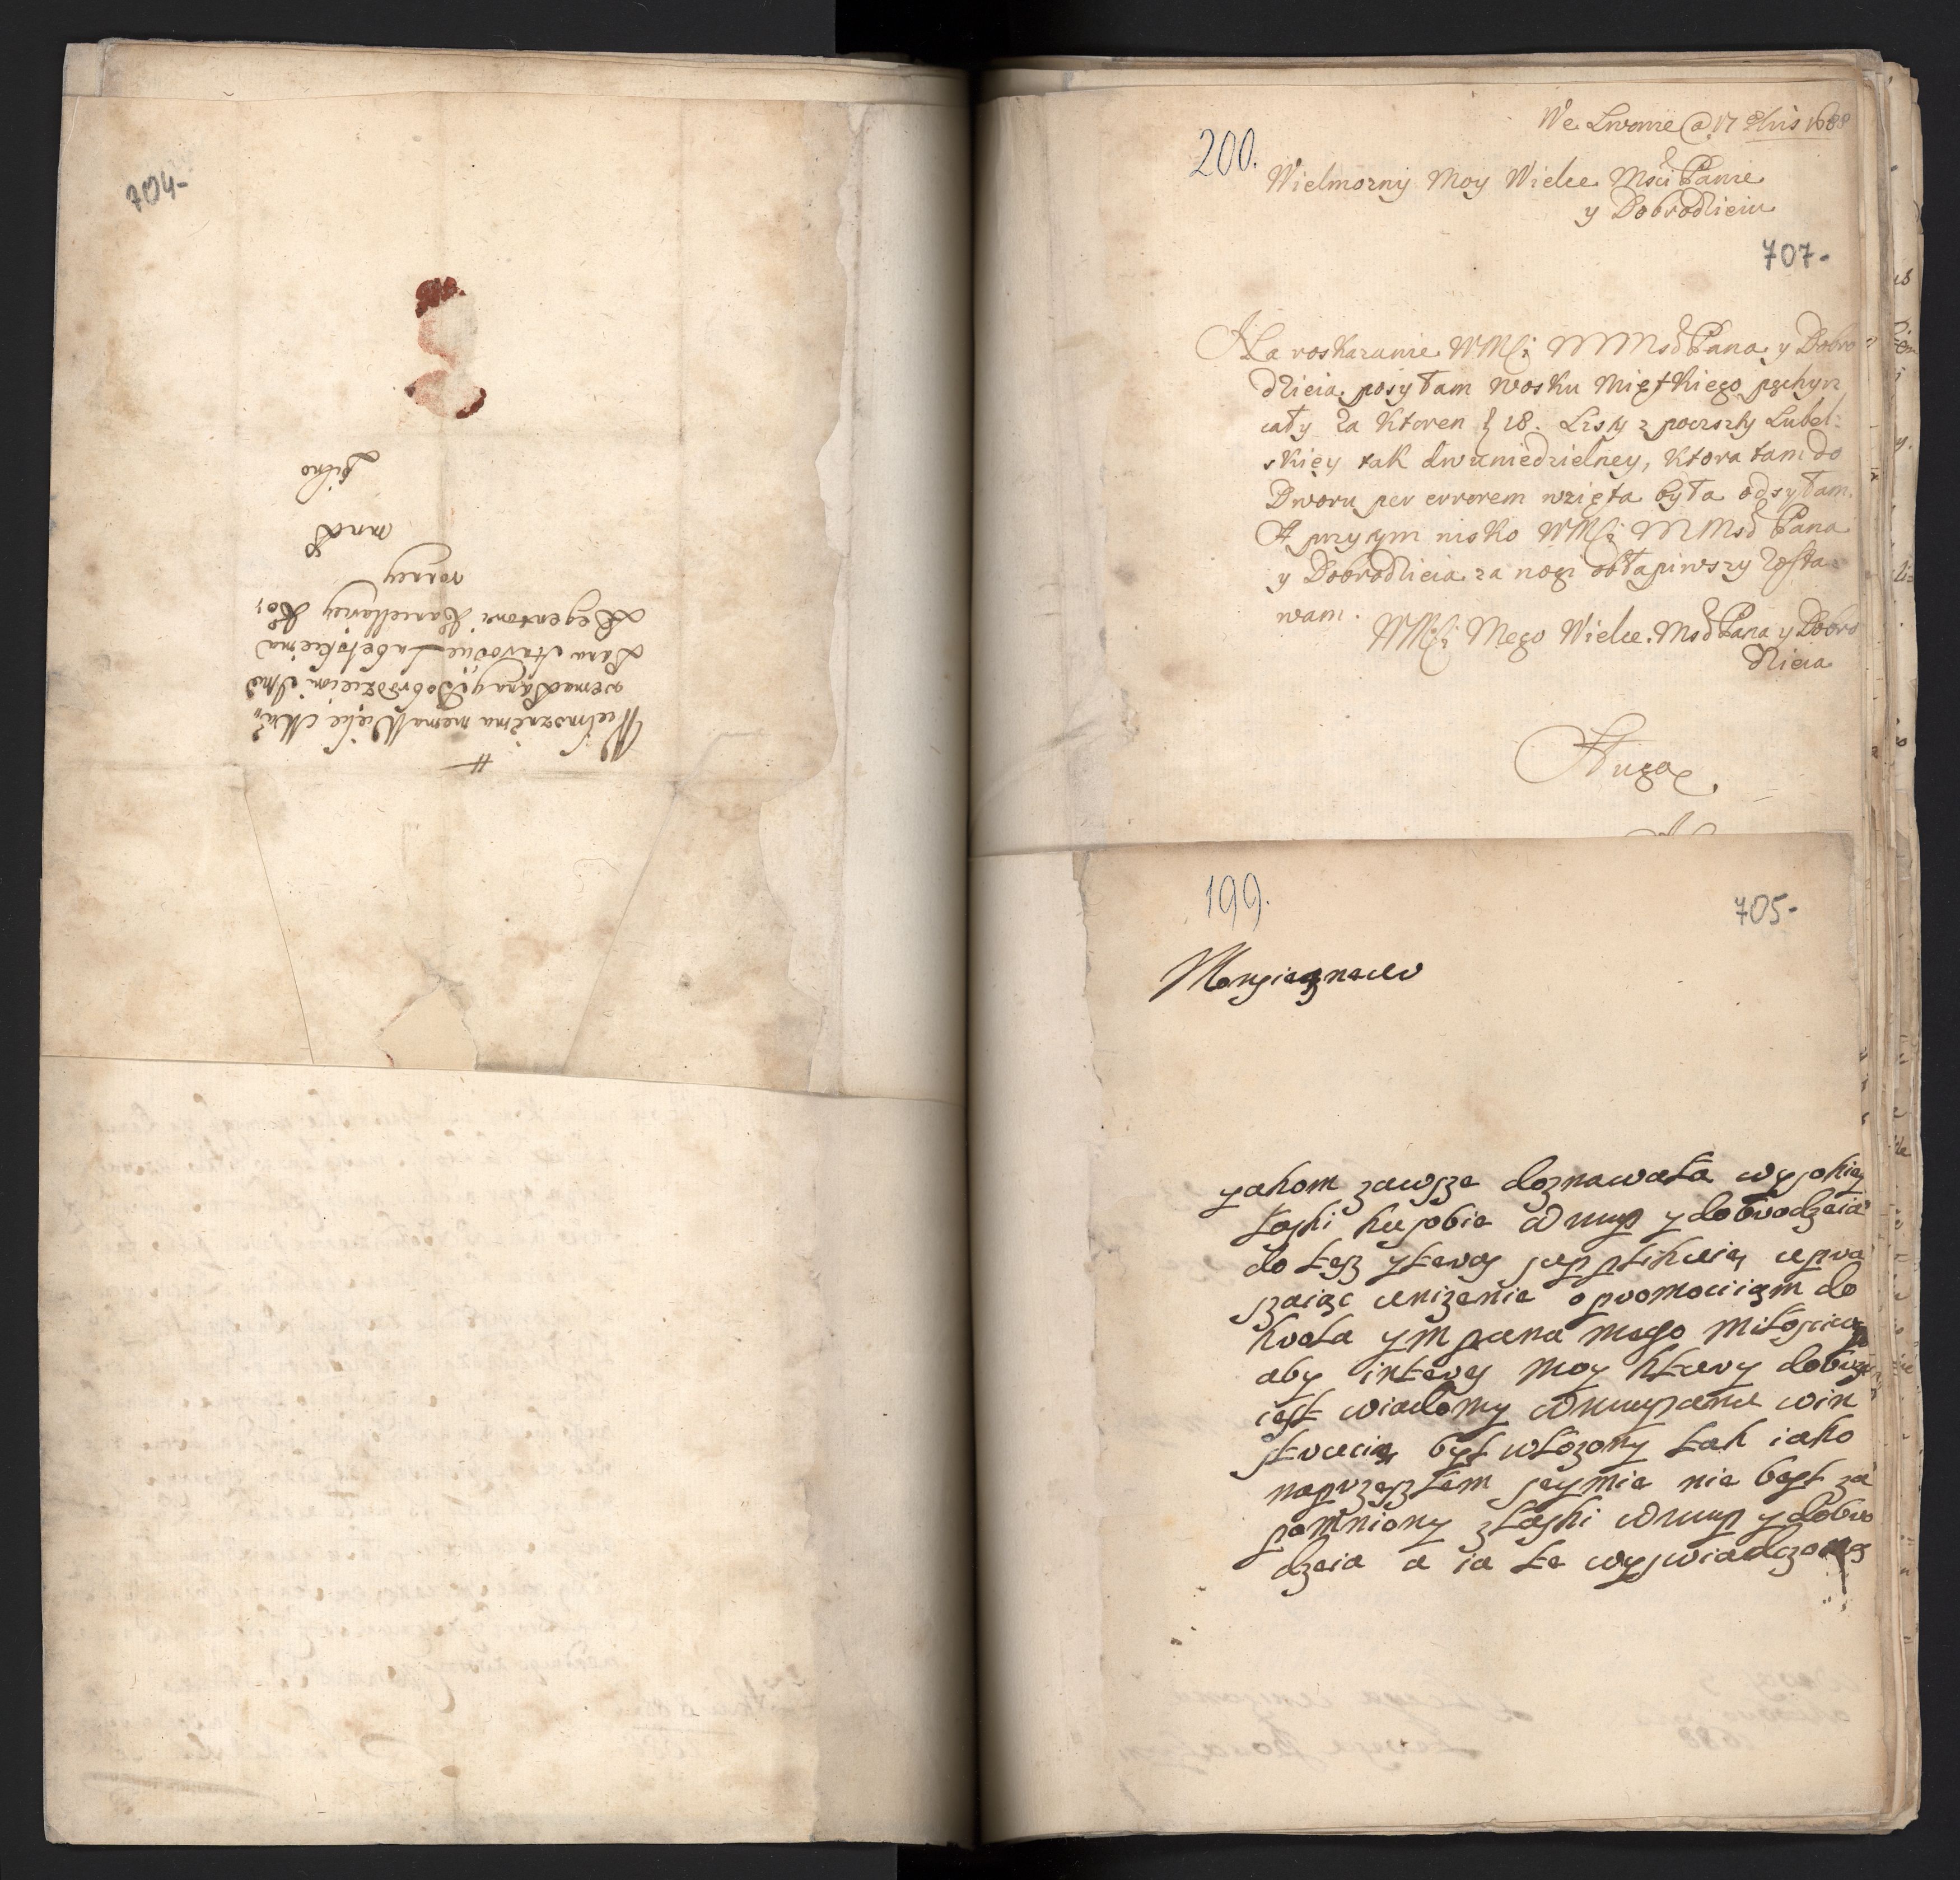 704-
Wielmoznemu memu Wielce Msci
wemu Panu y Dobrodzieiowi Jmci
Panu
Regentowi Kancellariey Ko=
ronney
pilno
200.
We Lwowie @ 17 1688
Wielmozny Moy Wielce Msci Panie
y Dobrodzieiu
707-
Na roskazanie WMsci MMsd Pana y Dobro
dzieia posyłam wosku Miętkiego pęchyrz
cały za ktoren 18. Listy z poczszty Lubel=
skiey tak dwuniedzielney, ktora tam do
Dworu per errorem wzięta była odsyłam.
A przytym nisko WMsci MMsd Pana
y Dobrodzieia za nogi obłapiwszy zosta=
wam.
WMsci Mego Wielce Msd Pana y Dobro
dzieia
Sługa
199.
705-
Monsieigneur
yakom zawsze doznawała wysokiey
łaski ku sobie wmmp y dobrodzeia
do tesz y teras supplikuię upra
szaiąc unizenie o promociiąm do
krola ym pana mego miłosciwego
aby interes moy ktury dobrze
iest wiadomy wmmpanu w in
strucią był włozony tak iako
na przeszłem seymie nie beł za
pomniony z łaski wmmp y dobro
dzeia a ia te wyswiadczoną